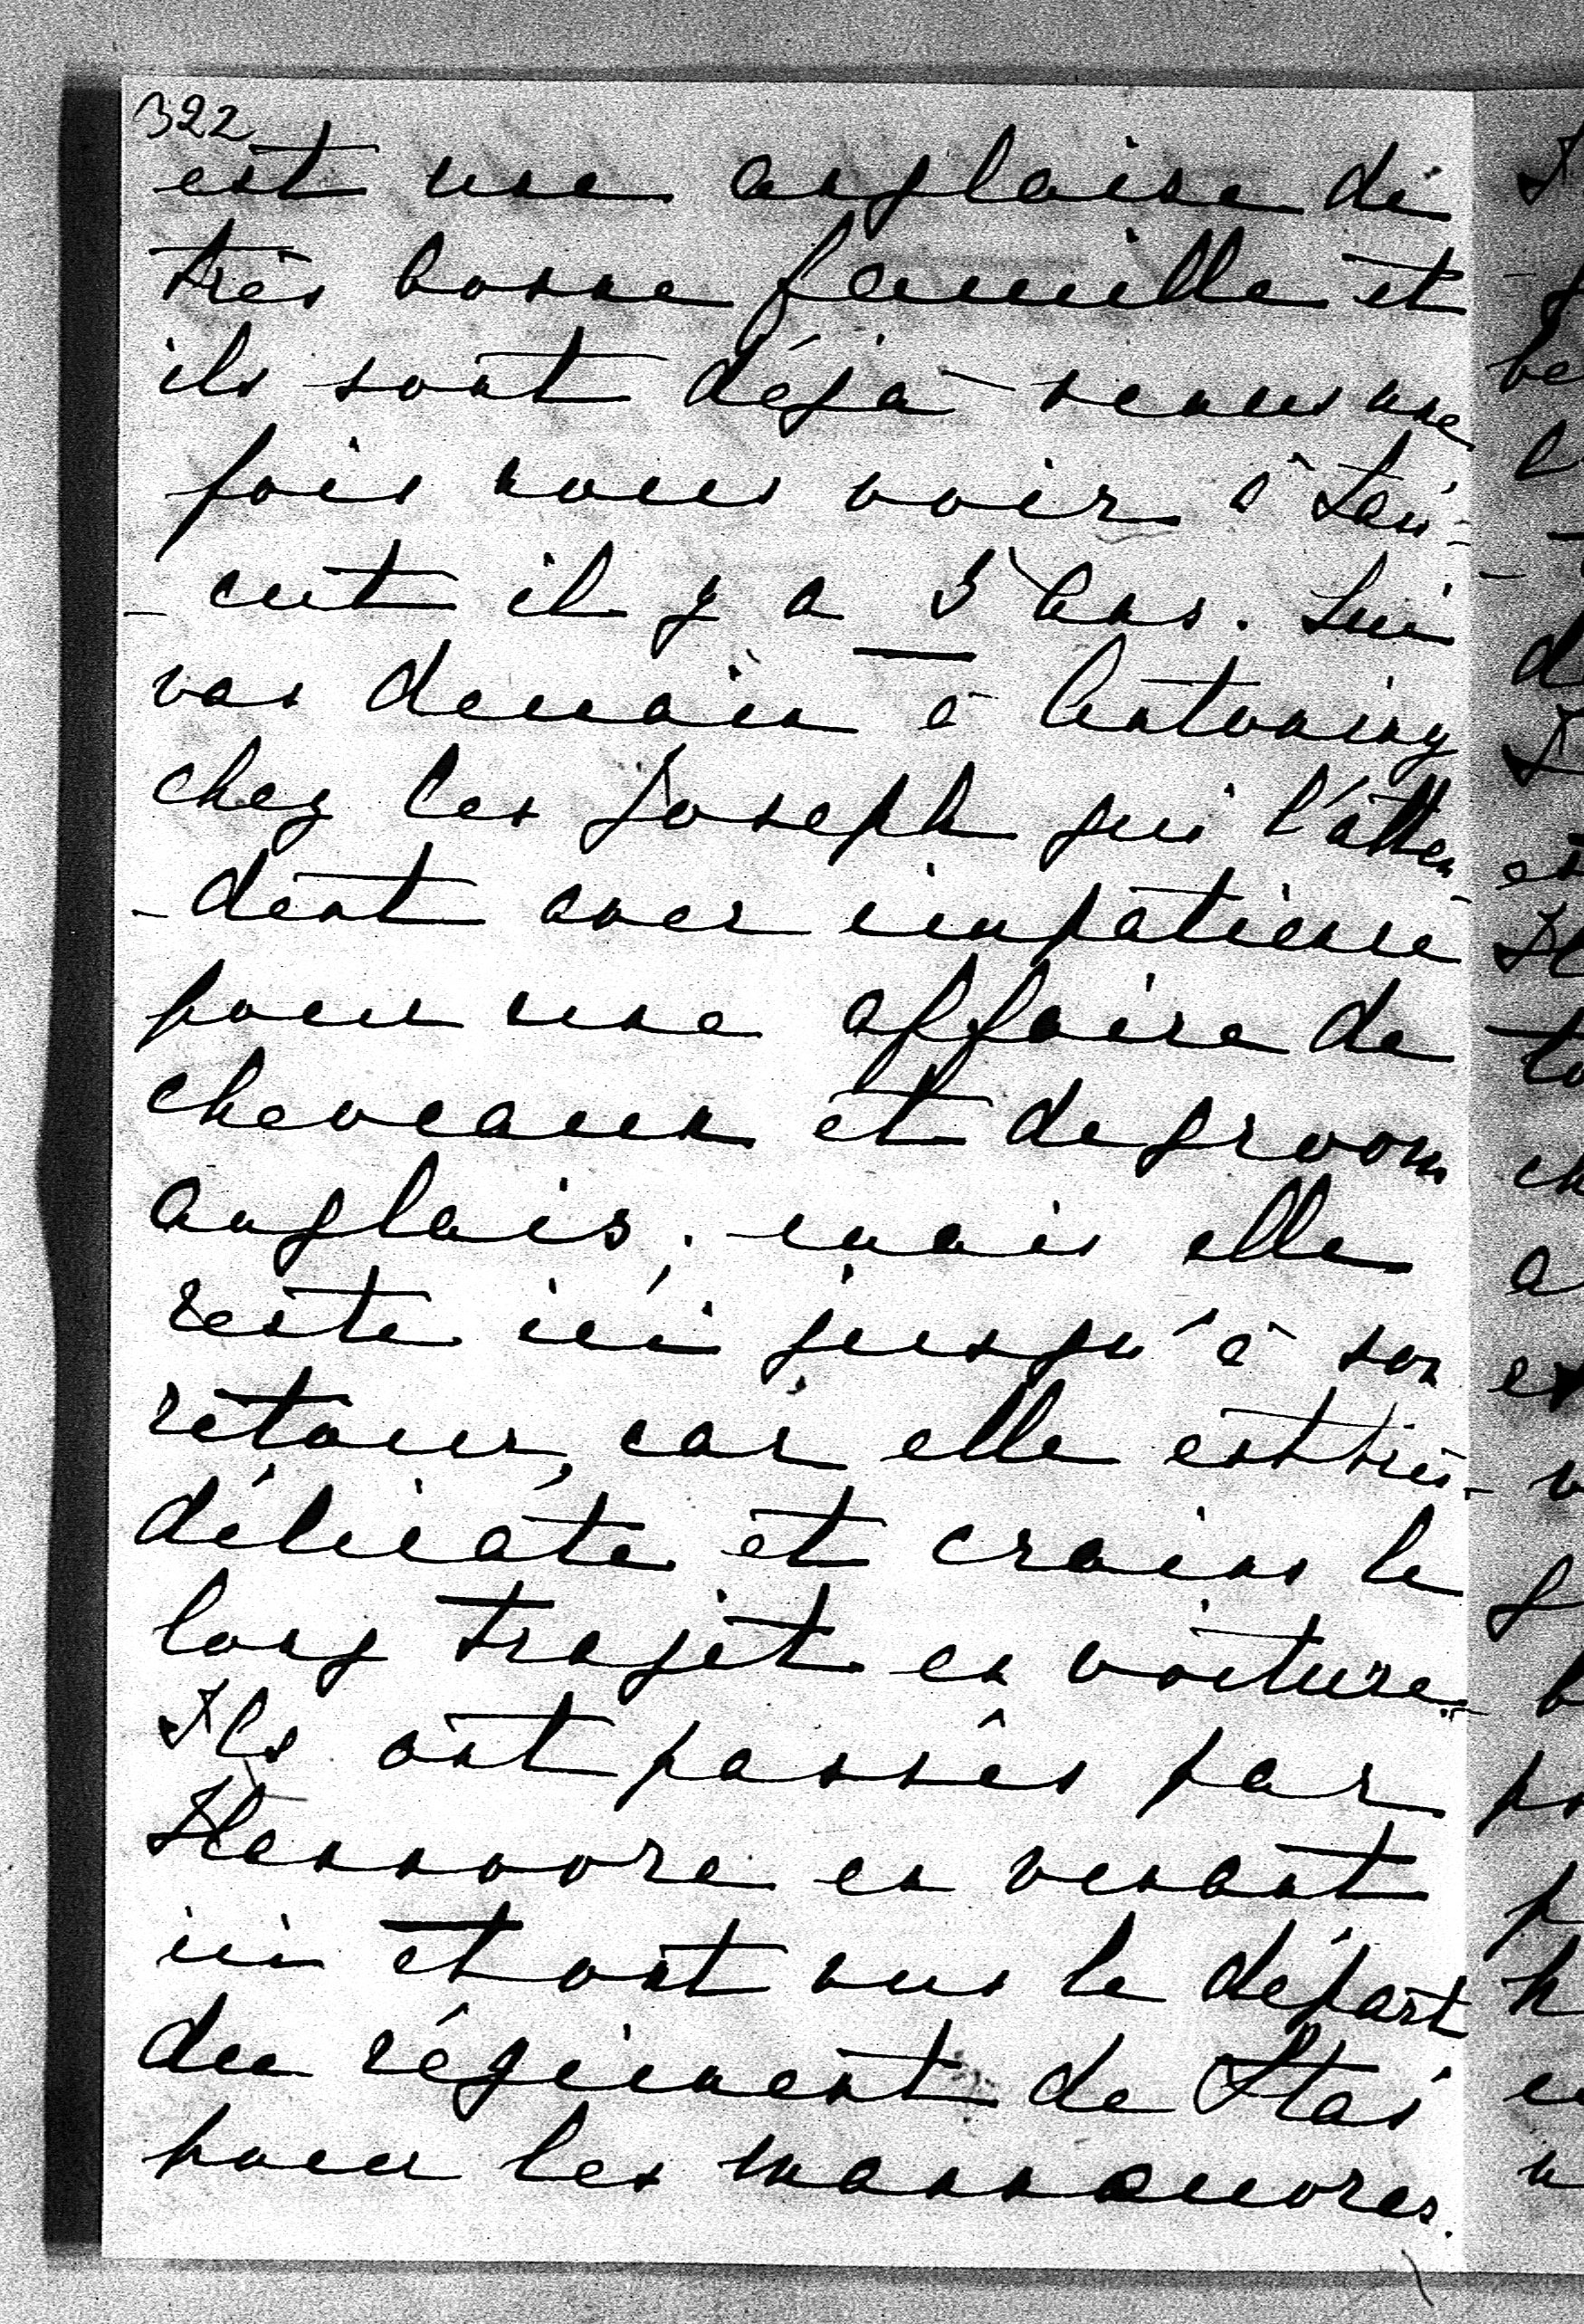 322
est une anglaise de
très bonne famille et
ils sont déjà venus une
fois nous voir à Lan-
-cut il y a 5 ans. Lui
vas demain à Antoniny
chez les Joseph qui l'atten-
-dent avec impatience
pour une affaire de
cheveaux et de groom
anglais. mais elle
reste ici jusqu'à son
retour, car elle est très-
délicate et crains le
long trajet en voiture.-
Ils ont passés par
Hannovre en venant
ici et ont vus le départ
du régiment de Stas
pour les mannouvres.